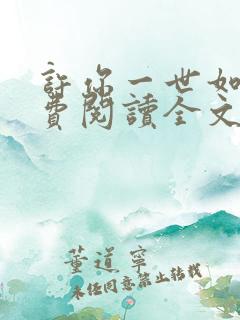 許你一世如
費閱讀全文
董道寧
未经同意禁止转载